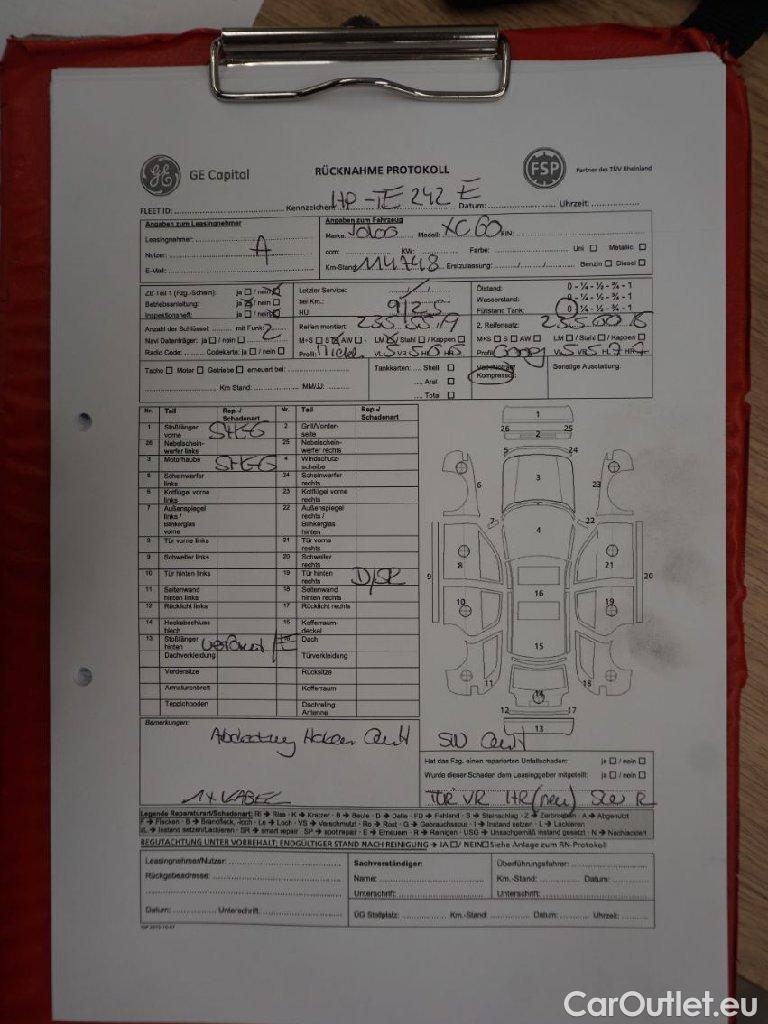 GE Capital
RÜCKNAHME PROTOKOLL
FSP
Partner des TÜV Rheinland
FLEET ID: Kennzeichen: HP-TE 242 E Datum: Uhrzeit:
Angaben zum Leasingnehmer
Leasingnehmer:
Nutzer: A
E-Mail:
Angaben zum Fahrzeug
Marke: Volvo Modell: XC 60
ccm: KW: Farbe: Uni Metallic
Km-Stand: 114748 Erstzulassung: Benzin Diesel
ZB Teil 1 (Fzg.-Schein): ja / nein
Betriebsanleitung: ja / nein
Inspektionsheft: ja / nein
Letzter Service:
bei Km.:
HU: 9/25
Ölstand: 0 - ¼ - ½ - ¾ - 1
Wasserstand: 0 - ¼ - ½ - ¾ - 1
Füllstand Tank: 0 - ¼ - ½ - ¾ - 1
Anzahl der Schlüssel: mit Funk: 2
Navi Datenträger: ja / nein
Radio Code: Codekarte: ja / nein
Reifen montiert: 235.55.19
M+S S AW LM / Stahl / Kappen
Profil: VL 5 VR 5 HL 5 HR 5
2. Reifensatz:
M+S S AW LM / Stahl / Kappen
Profil VL 5 VR 5 HL 7 HR 7
Tacho Motor Getriebe erneuert bei:
Km Stand: MM/JJ:
Tankkarten: Shell
Aral
Total
Kompressor
Sonstige Ausstattung:
Nr. Teil Rep-/ Schadenart Nr. Teil Rep-/ Schadenart
1 Stoßfänger vorne 2 Grill/Vorderseite
26 Nebelscheinwerfer links 25 Nebelscheinwerfer rechts
3 Motorhaube 4 Windschutzscheibe
5 Scheinwerfer links 24 Scheinwerfer rechts
6 Kotflügel vorne links 23 Kotflügel vorne rechts
7 Außenspiegel links / Blinkerglas vorne 22 Außenspiegel rechts / Blinkerglas hinten
8 Tür vorne links 21 Tür vorne rechts
9 Schweller links 20 Schweller rechts
10 Tür hinten links 19 Tür hinten rechts D/SR
11 Seitenwand hinten links 18 Seitenwand hinten rechts
12 Rücklicht links 17 Rücklicht rechts
14 Heckabschlussblech 15 Kofferraumdeckel
13 Stoßfänger hinten verformt / E 16 Dach
Dachverkleidung Türverkleidung
Vordersitze Rücksitze
Armaturenbrett Kofferraum
Teppichboden Dachreling Antenne
1
26 25
2
5 24
3
6 23
7 22
4
8 21
9 20
16
10 19
15
11 18
14
12 17
13
Bemerkungen:
Abdeckung Haken
1x KABEL
Hat das Fzg. einen reparierten Unfallschaden: ja / nein
Wurde dieser Schaden dem Leasinggeber mitgeteilt: ja / nein
TÜR VR HR (neu) SW R
Legende Reparaturart/Schadenart: RI → Riss · K → Kratzer · B → Beule · D → Delle · FD → Fehland · S → Steinschlag · Z → Zerbrochen · A → Abgenutzt
F → Flecken · B → Brandfleck, -loch · Lo → Loch · VS → Verschmutzt · Ro → Rost · G → Gebrauchsspur · I → Instand setzen · L → Lackieren
IL → Instand setzen/Lackieren · SR → smart repair · SP → spotrepair · E → Erneuern · R → Reinigen · USG → Unsachgemäß instand gesetzt · N → Nachlackiert
BEGUTACHTUNG UNTER VORBEHALT; ENDGÜLTIGER STAND NACH REINIGUNG → JA / NEIN Siehe Anlage zum RN-Protokoll
Leasingnehmer/Nutzer:
Rückgabeadresse:
Datum: Unterschrift:
Sachverständiger:
Name:
Unterschrift:
Überführungsfahrer:
Km.-Stand: Datum:
Unterschrift:
ÜG Stellplatz: Km.-Stand Datum: Uhrzeit:
CarOutlet.eu